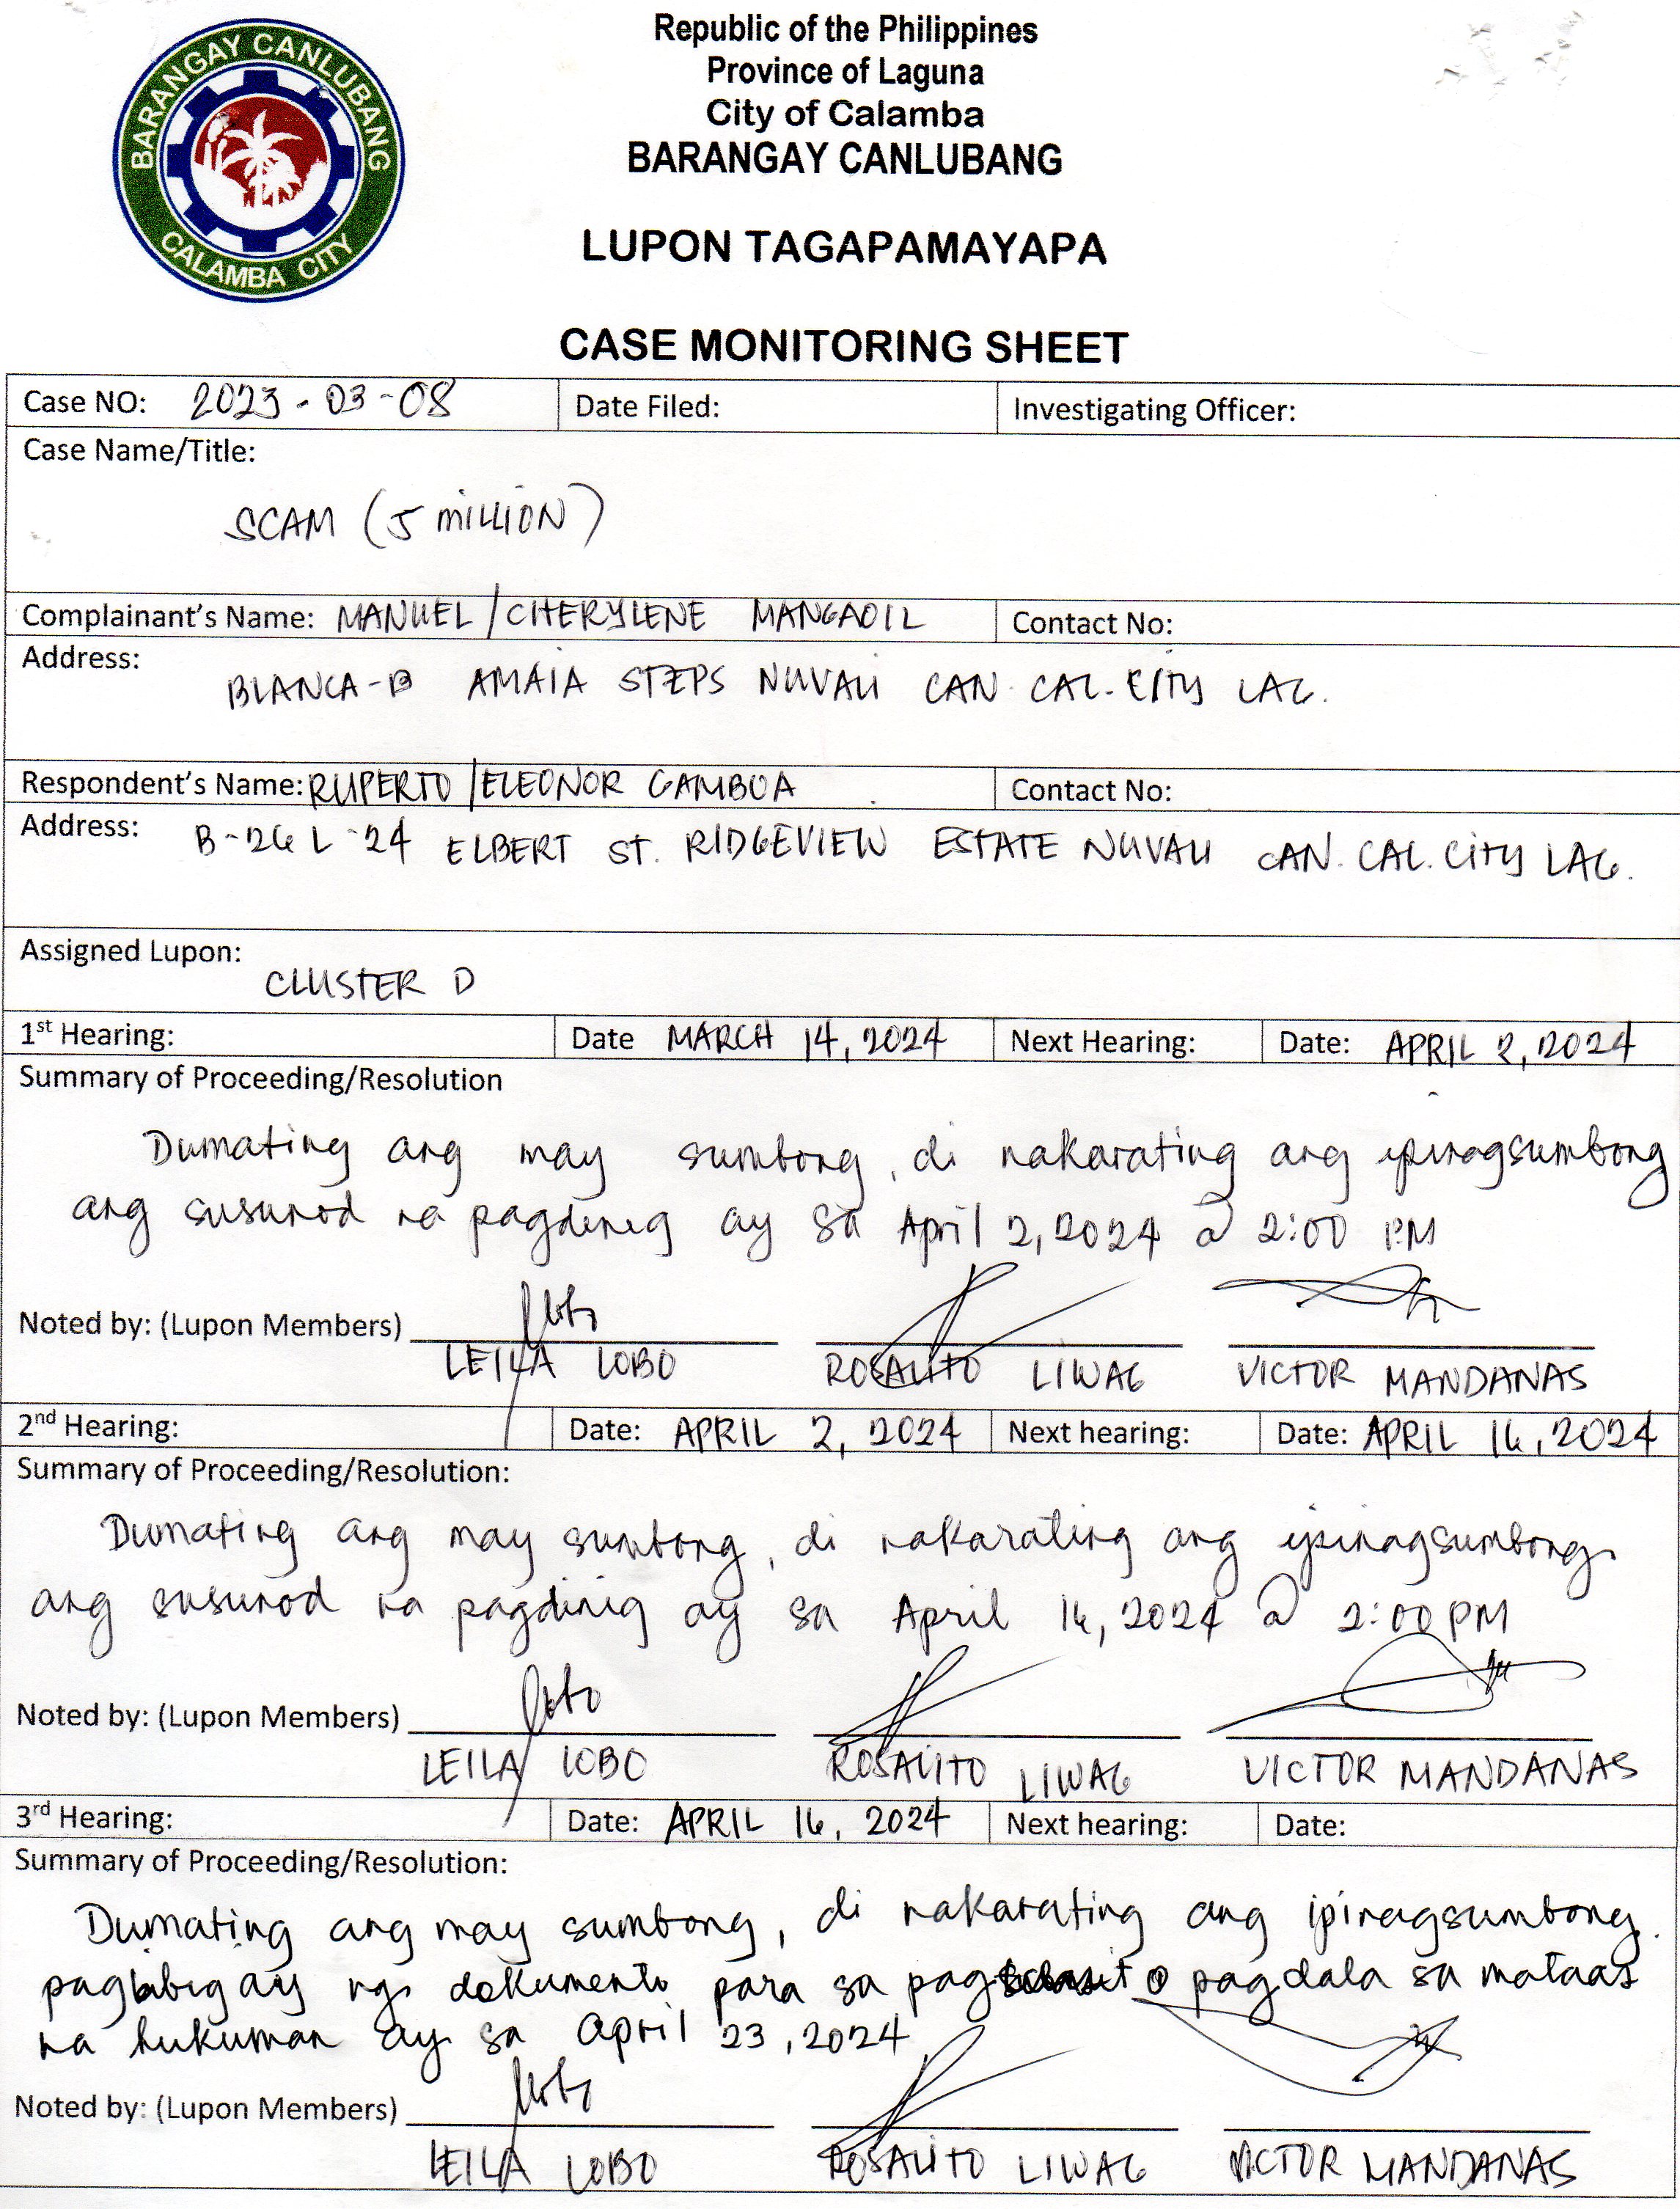 BARANGAY CANLUBANG
CALAMBA CITY
Republic of the Philippines
Province of Laguna
City of Calamba
BARANGAY CANLUBANG
LUPON TAGAPAMAYAPA
CASE MONITORING SHEET
Case NO: 2023-03-08 Date Filed: Investigating Officer:
Case Name/Title:
SCAM (5 MILLION)
Complainant's Name: MANUEL/CHERYLENE MANGAOIL Contact No:
Address:
BLANCA-B AMAIA STEPS NUVALI CAN. CAL. CITY LAG.
Respondent's Name: RUPERTO/ELEONOR GAMBOA Contact No:
Address: B-26 L-24 ELBERT ST. RIDGEVIEW ESTATE NUVALI CAN. CAL. CITY LAG.
Assigned Lupon:
CLUSTER D
1st Hearing: Date MARCH 14, 2024 Next Hearing: Date: APRIL 2, 2024
Summary of Proceeding/Resolution
Dumating ang may sumbong, di nakarating ang ipinagsumbong
ang susunod na pagdinig ay sa April 2, 2024 @ 2:00 PM
Noted by: (Lupon Members)
LEILA LOBO ROSALITO LIWAG VICTOR MANDANAS
2nd Hearing: Date: APRIL 2, 2024 Next hearing: Date: APRIL 16, 2024
Summary of Proceeding/Resolution:
Dumating ang may sumbong, di nakarating ang ipinagsumbong.
ang susunod na pagdinig ay sa April 16, 2024 @ 2:00 PM
Noted by: (Lupon Members)
LEILA LOBO ROSALITO LIWAG VICTOR MANDANAS
3rd Hearing: Date: APRIL 16, 2024 Next hearing: Date:
Summary of Proceeding/Resolution:
Dumating ang may sumbong, di nakarating ang ipinagsumbong.
pagbibigay ng dokumento para sa o pagdala sa mataas
na hukuman ay sa April 23, 2024
Noted by: (Lupon Members)
LEILA LOBO ROSALITO LIWAG VICTOR MANDANAS